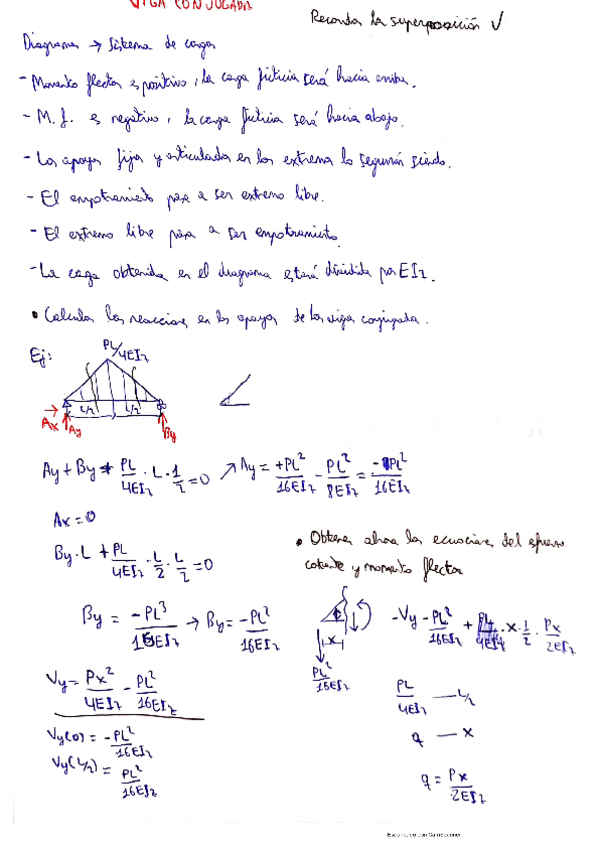 VIGA CONJUGADA
Recordar la superposición √
Diagrama → sistema de cargas
- Momento flector es positivo, la carga ficticia será hacia arriba.
- M. f. es negativo, la carga ficticia será hacia abajo.
- Los apoyos fijos y articulados en los extremos lo seguirán siendo.
- El empotramiento pasa a ser extremo libre.
- El extremo libre pasa a ser empotramiento.
- La carga obtenida en el diagrama estará dividida por EIz.
• Calcular las reacciones en los apoyos de la viga conjugada.
Ej:
PL/4EIz
L/2 L/2
Ax Ay By
Ay + By + PL/4EIz · L · 1/2 = 0 ↗ Ay = +PL²/16EIz - PL²/8EIz = -PL²/16EIz
Ax = 0
By · L + PL/4EIz · L/2 · L/2 = 0
• Obtener ahora las ecuaciones del esfuerzo
cortante y momento flector
By = -PL³/16EIz → By = -PL²/16EIz
x
PL²/16EIz
-Vy - PL²/16EIz + x · 1/2 · Px/2EIz
Vy = Px²/4EIz - PL²/16EIz
PL/4EIz — L/2
Vy(0) = -PL²/16EIz
q — x
Vy(L/2) = PL²/16EIz
q = Px/2EIz